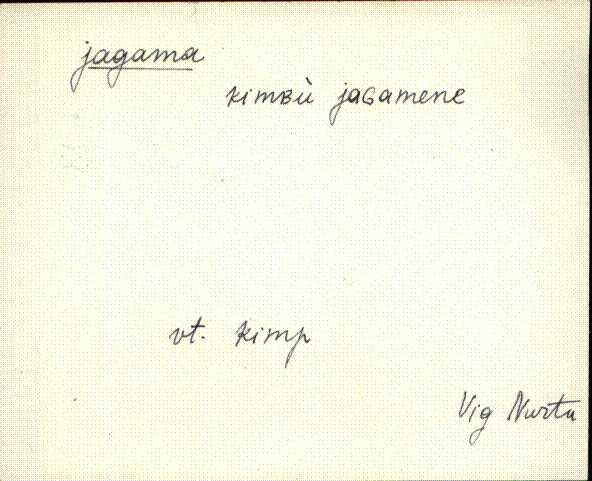 jagama
kimʙù jaɢamene
vt. kimp
Vig Nurtu